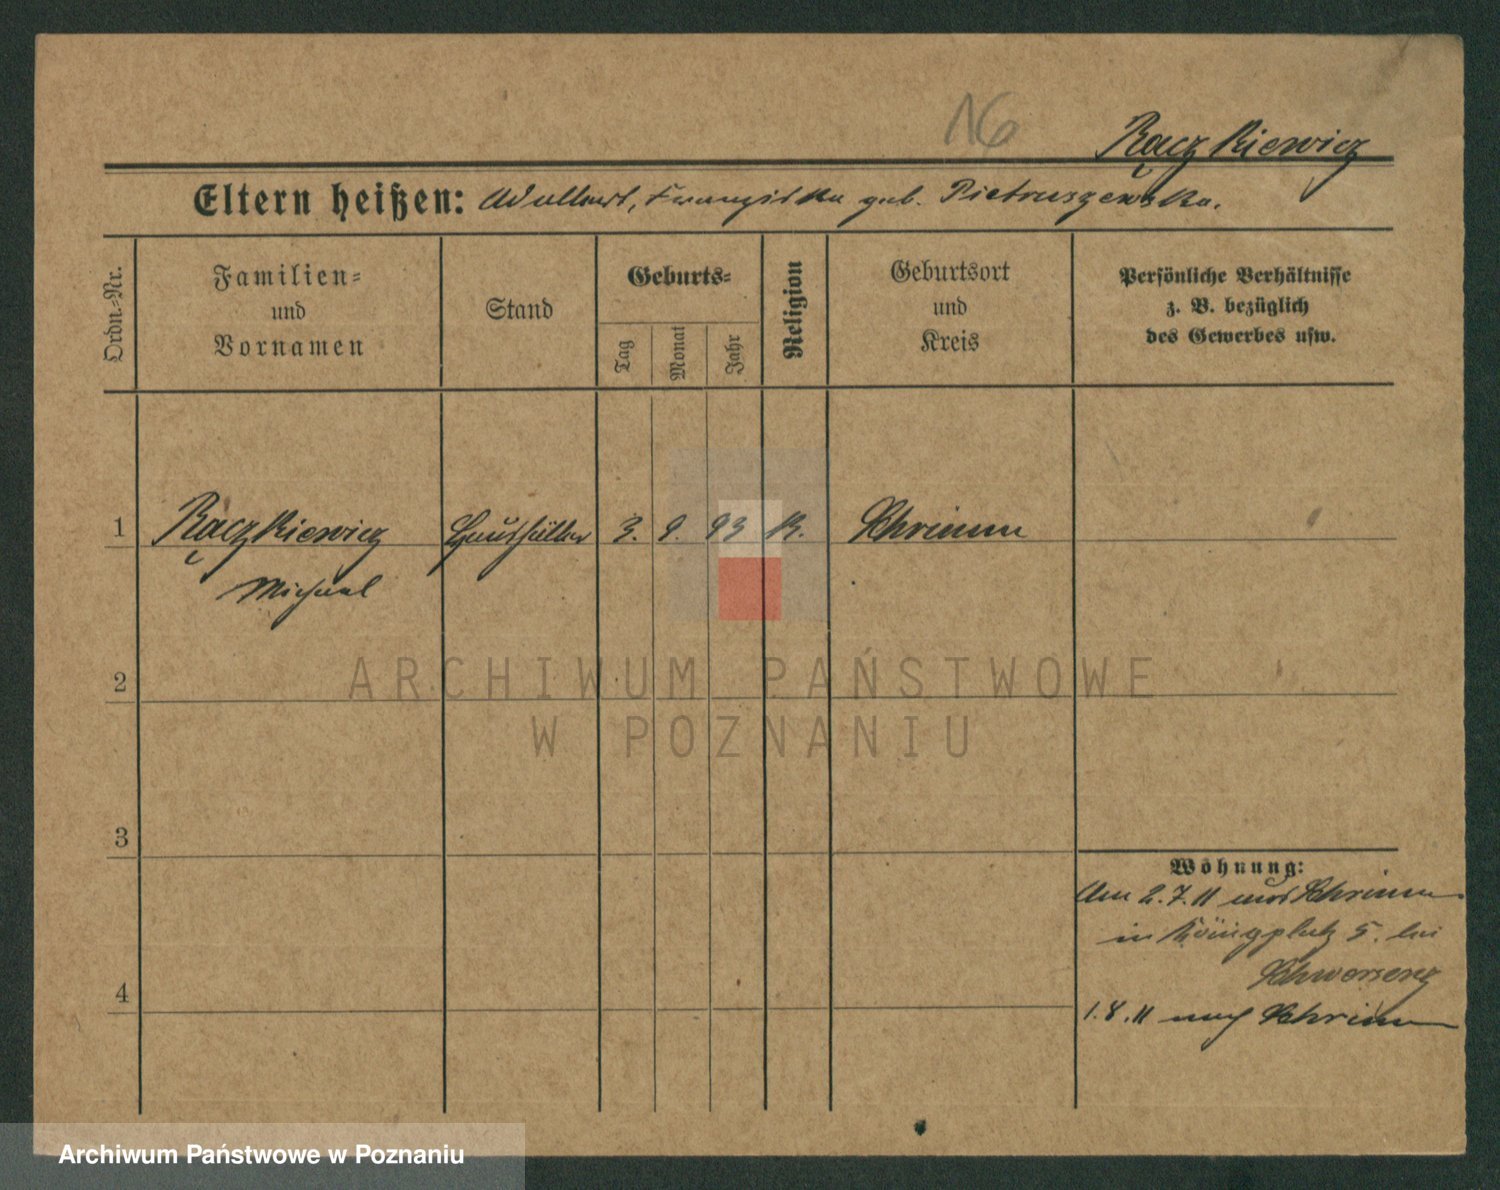 16
Raczkiewicz
Eltern heißen: Adalbert, Franziska geb. Pietruszewska.
Ordn.-Nr.
Familien-
und
Vornamen
Stand
Geburts-
Tag
Monat
Jahr
Religion
Geburtsort
und
Kreis
Persönliche Verhältnisse
z. B. bezüglich
des Gewerbes usw.
1 Raczkiewicz 3. 9. 93 K. Schrimm
Michael
2
3
4
Wohnung:
Am 2.7.11 aus Schrimm
in Königplatz 5. bei
Schwersenz
1.8.11 nach Schrimm
ARCHIWUM PAŃSTWOWE
W POZNANIU
Archiwum Państwowe w Poznaniu